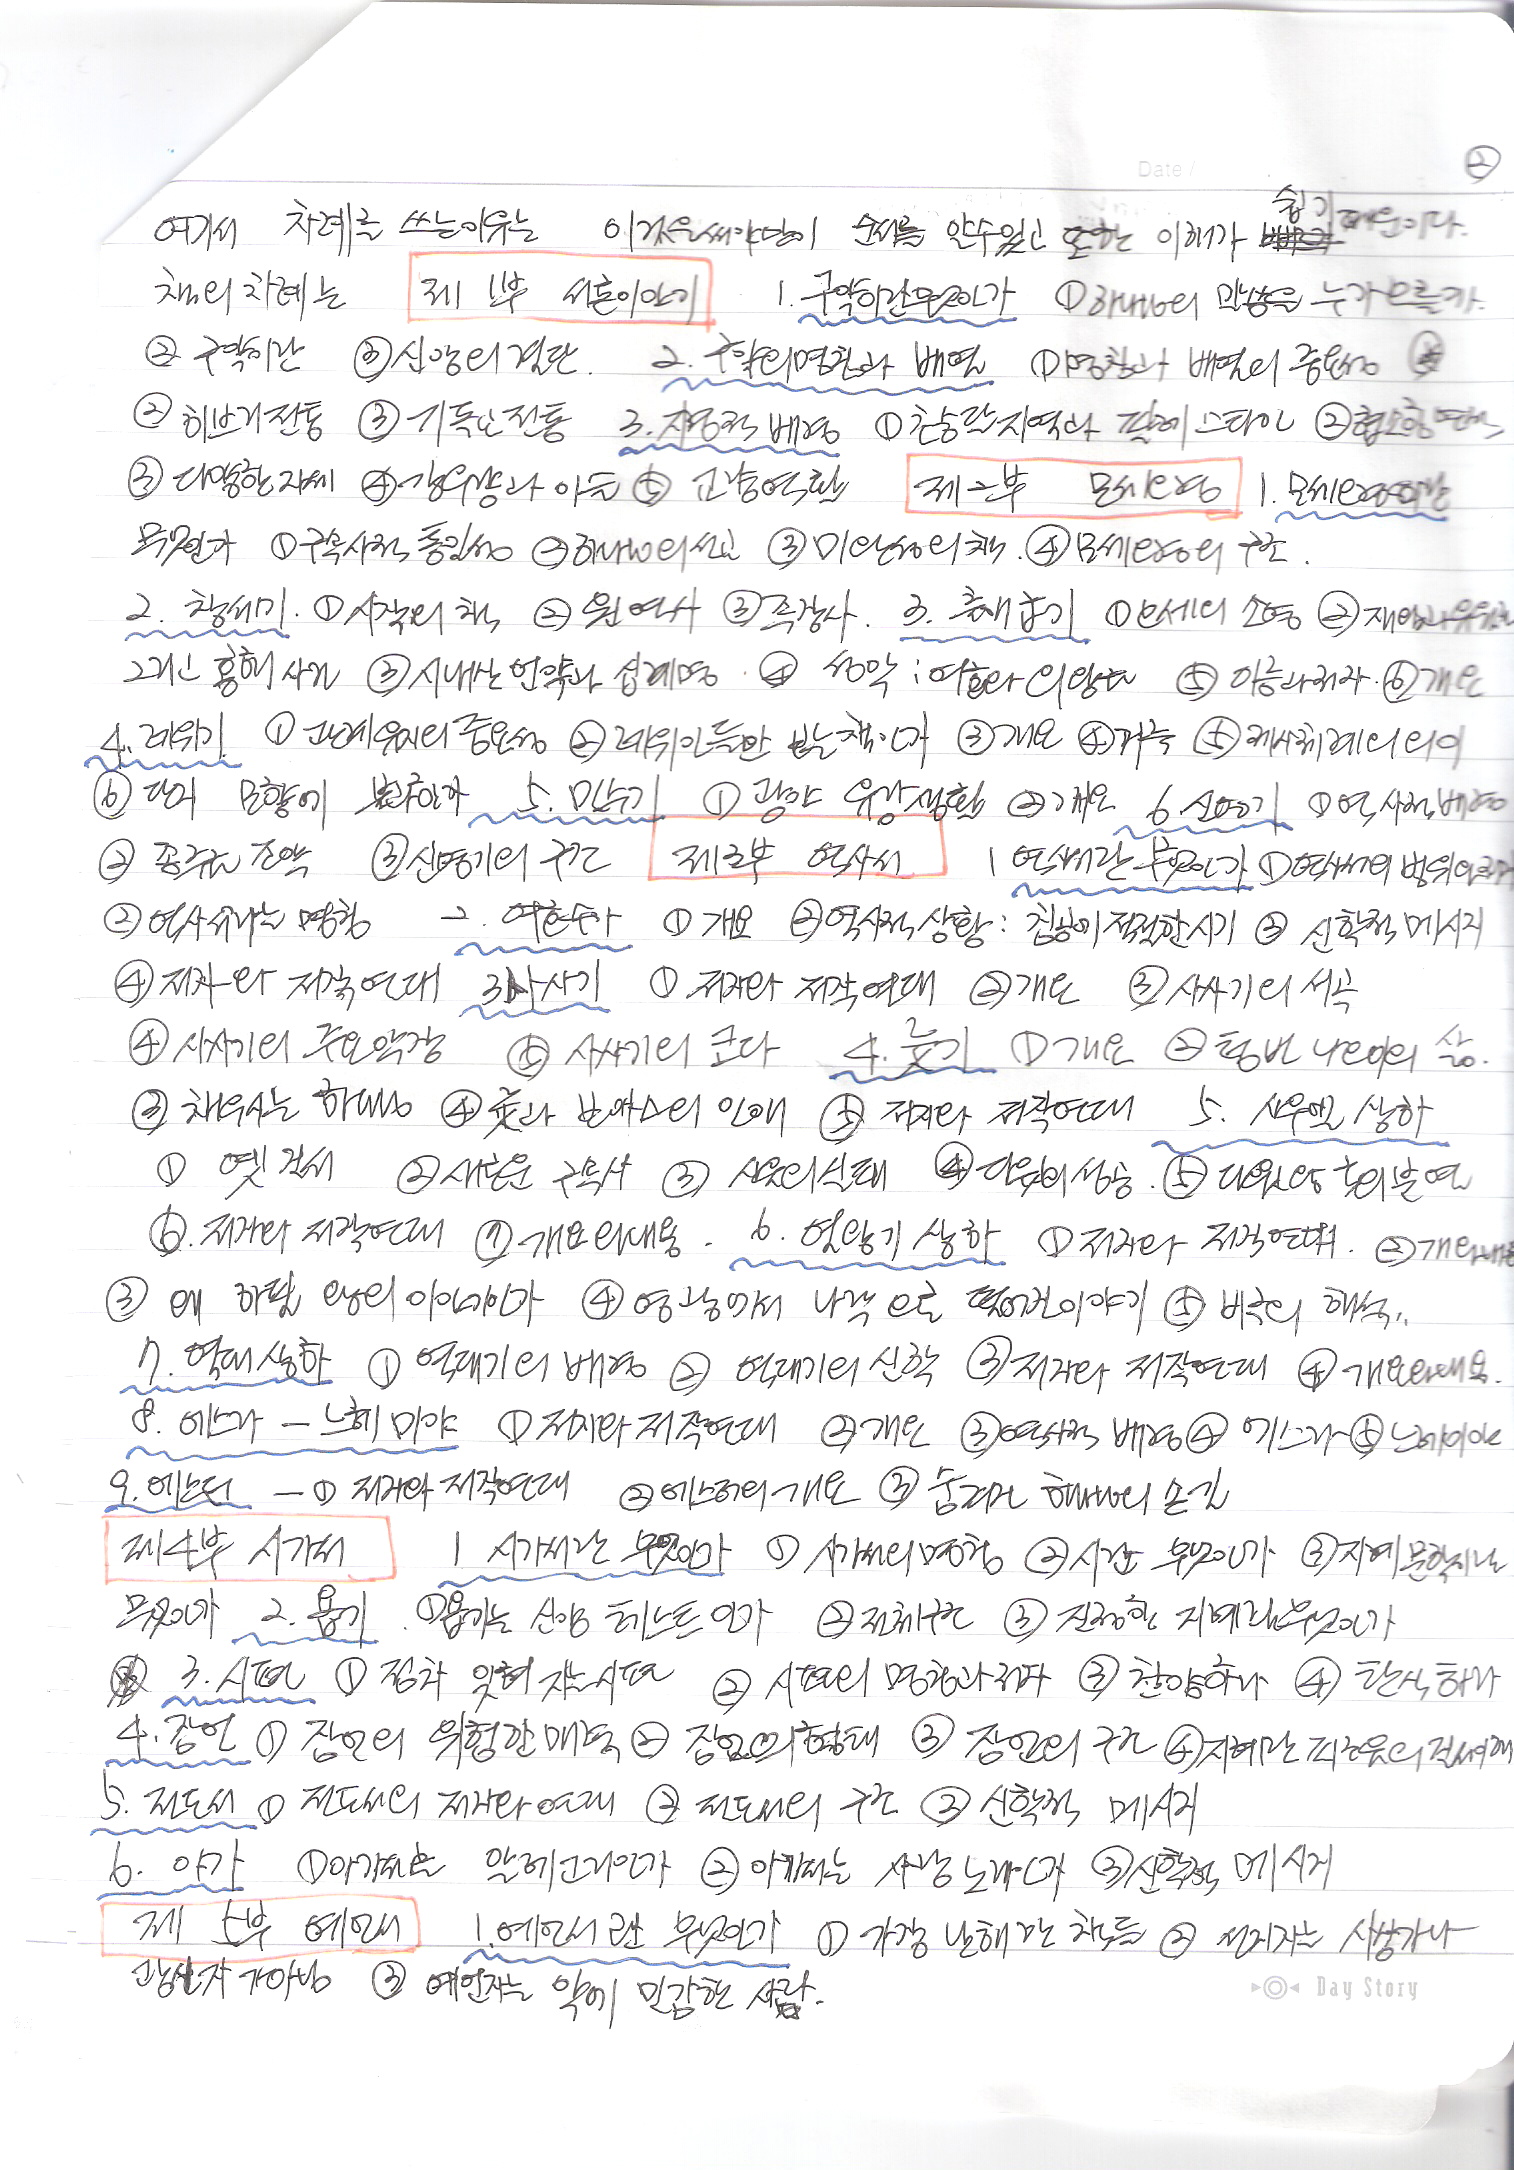 Date /
②
여기서 차례를 쓰는 이유는 이것을 써야만이 순서를 알수있고 또한 이해가 쉽기 때문이다.
책의 차례는 제 1부 서론이야기 1. 구약이란 무엇인가 ① 하나님의 말씀을 누가 모를까
② 구약이란 ③ 신앙의 결단. 2. 구약의 명칭과 배열 ① 명칭과 배열의 중요성
② 히브리전통 ③ 기독교전통 3. 지형적 배경 ① 가나안 지역과 팔레스타인 ② 협소한 면적
③ 다양한 지세 ④ 강우량과 이슬 ⑤ 교통 역할 제2부 모세오경 1. 모세오경이란
무엇인가 ① 구속사적 통일성 ② 하나님의 선교 ③ 미완성의 책. ④ 모세오경의 구조.
2. 창세기. ① 시작의 책 ② 원 역사 ③ 족장사. 3. 출애굽기 ① 모세의 소명 ② 재앙과 유월절
그리고 홍해사건 ③ 시내산 언약과 십계명. ④ 성막: 여호와의 임재 ⑤ 이름과 저자. ⑥ 개요
4. 레위기 ① 관계유지의 중요성 ② 레위인들만 보는 책인가 ③ 개요 ④ 거룩 ⑤ 제사체계의 의의
⑥ 5. 민수기 ① 광야 유랑생활 ② 개요 6. 신명기 ① 역사적 배경
② 종주권 조약 ③ 신명기의 구조 제3부 역사서 1 역사서란 무엇인가 ① 역사서의 범위
② 역사서라는 명칭 2. 여호수아 ① 개요 ② 역사적 상황: 침공이 적절한 시기 ③ 신학적 메시지
④ 저자와 저작연대 3. 사사기 ① 저자와 저작연대 ② 개요 ③ 사사기의 서곡
④ 사사기의 주요악장 ⑤ 사사기의 코다 4. 룻기 ① 개요 ② 텅빈 나오미의 삶.
③ 채우시는 하나님 ④ 룻과 보아스의 인애 ⑤ 저자와 저작연대 5. 사무엘 상하
① 옛 질서 ② 새로운 구속사 ③ 사울의 실패 ④ 다윗의 성공. ⑤ 다윗왕국의 분열
⑥. 저자와 저작연대 ⑦ 개요와 내용. 6. 열왕기 상하 ① 저자와 저작연대. ② 개요와 내용
③ 왜 하필 왕의 이야기인가 ④ 영광에서 나락으로 떨어진 이야기 ⑤ 비극의 해석..
7. 역대상하 ① 역대기의 배경 ② 역대기의 신학 ③ 저자와 저작연대 ④ 개요와 내용.
8. 에스라 - 느헤미야 ① 저자와 저작연대 ② 개요 ③ 역사적 배경 ④ 에스라 ⑤ 느헤미야
9. 에스더 - ① 저자와 저작연대 ② 에스더의 개요 ③ 숨겨진 하나님의 손길
제4부 시가서 1 시가서란 무엇인가 ① 시가서의 명칭 ② 시란 무엇인가 ③ 지혜문학이란
무엇인가 2. 욥기. ① 욥기는 신앙 테스트인가 ② 전체구조 ③ 진정한 지혜란 무엇인가
3. 시편 ① 점차 잊혀 지는 시편 ② 시편의 명칭과 저자 ③ 찬양하라 ④ 탄식하라
4. 잠언 ① 잠언의 위험한 매력 ② 잠언의 형태 ③ 잠언의 구조 ④ 지혜란
5. 전도서 ① 전도서의 저자와 연대 ② 전도서의 구조 ③ 신학적 메시지
6. 아가 ① 아가서는 알레고리인가 ② 아가서는 사랑노래인가 ③ 신학적 메시지
제 5부 예언서 1. 예언서란 무엇인가 ① 가장 난해한 책들 ② 선지자는 사상가나
광신자가 아님 ③ 예언자는 악에 민감한 사람.
Day Story